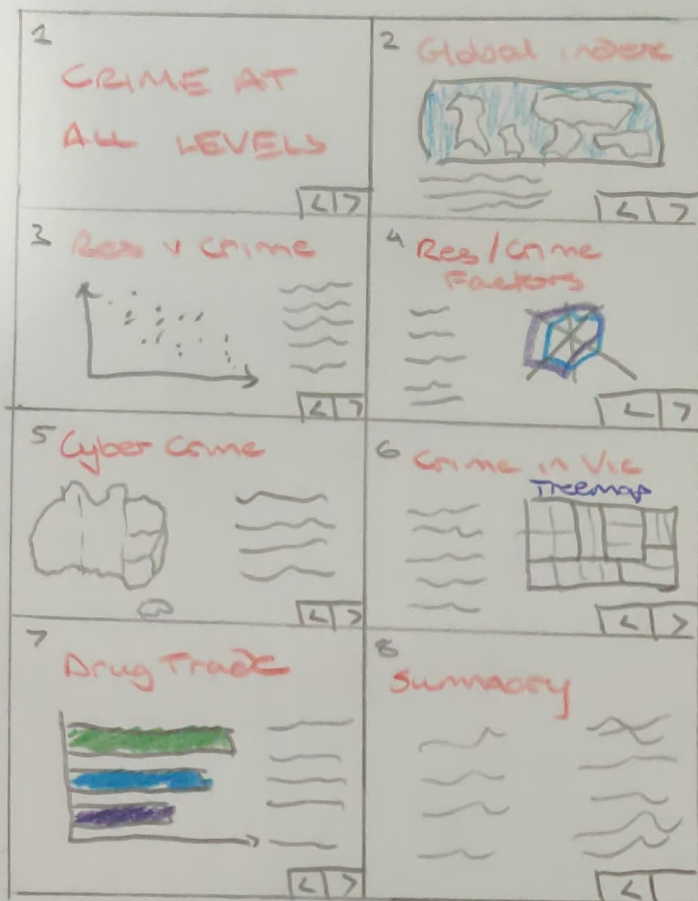 1
CRIME AT
ALL LEVELS
< >
2 Global index
< >
3 Res v Crime
< >
4 Res/Crime
Factors
< >
5 Cyber Crime
< >
6 Crime in Vic
Treemap
< >
7
Drug Trade
< >
8
Summary
<